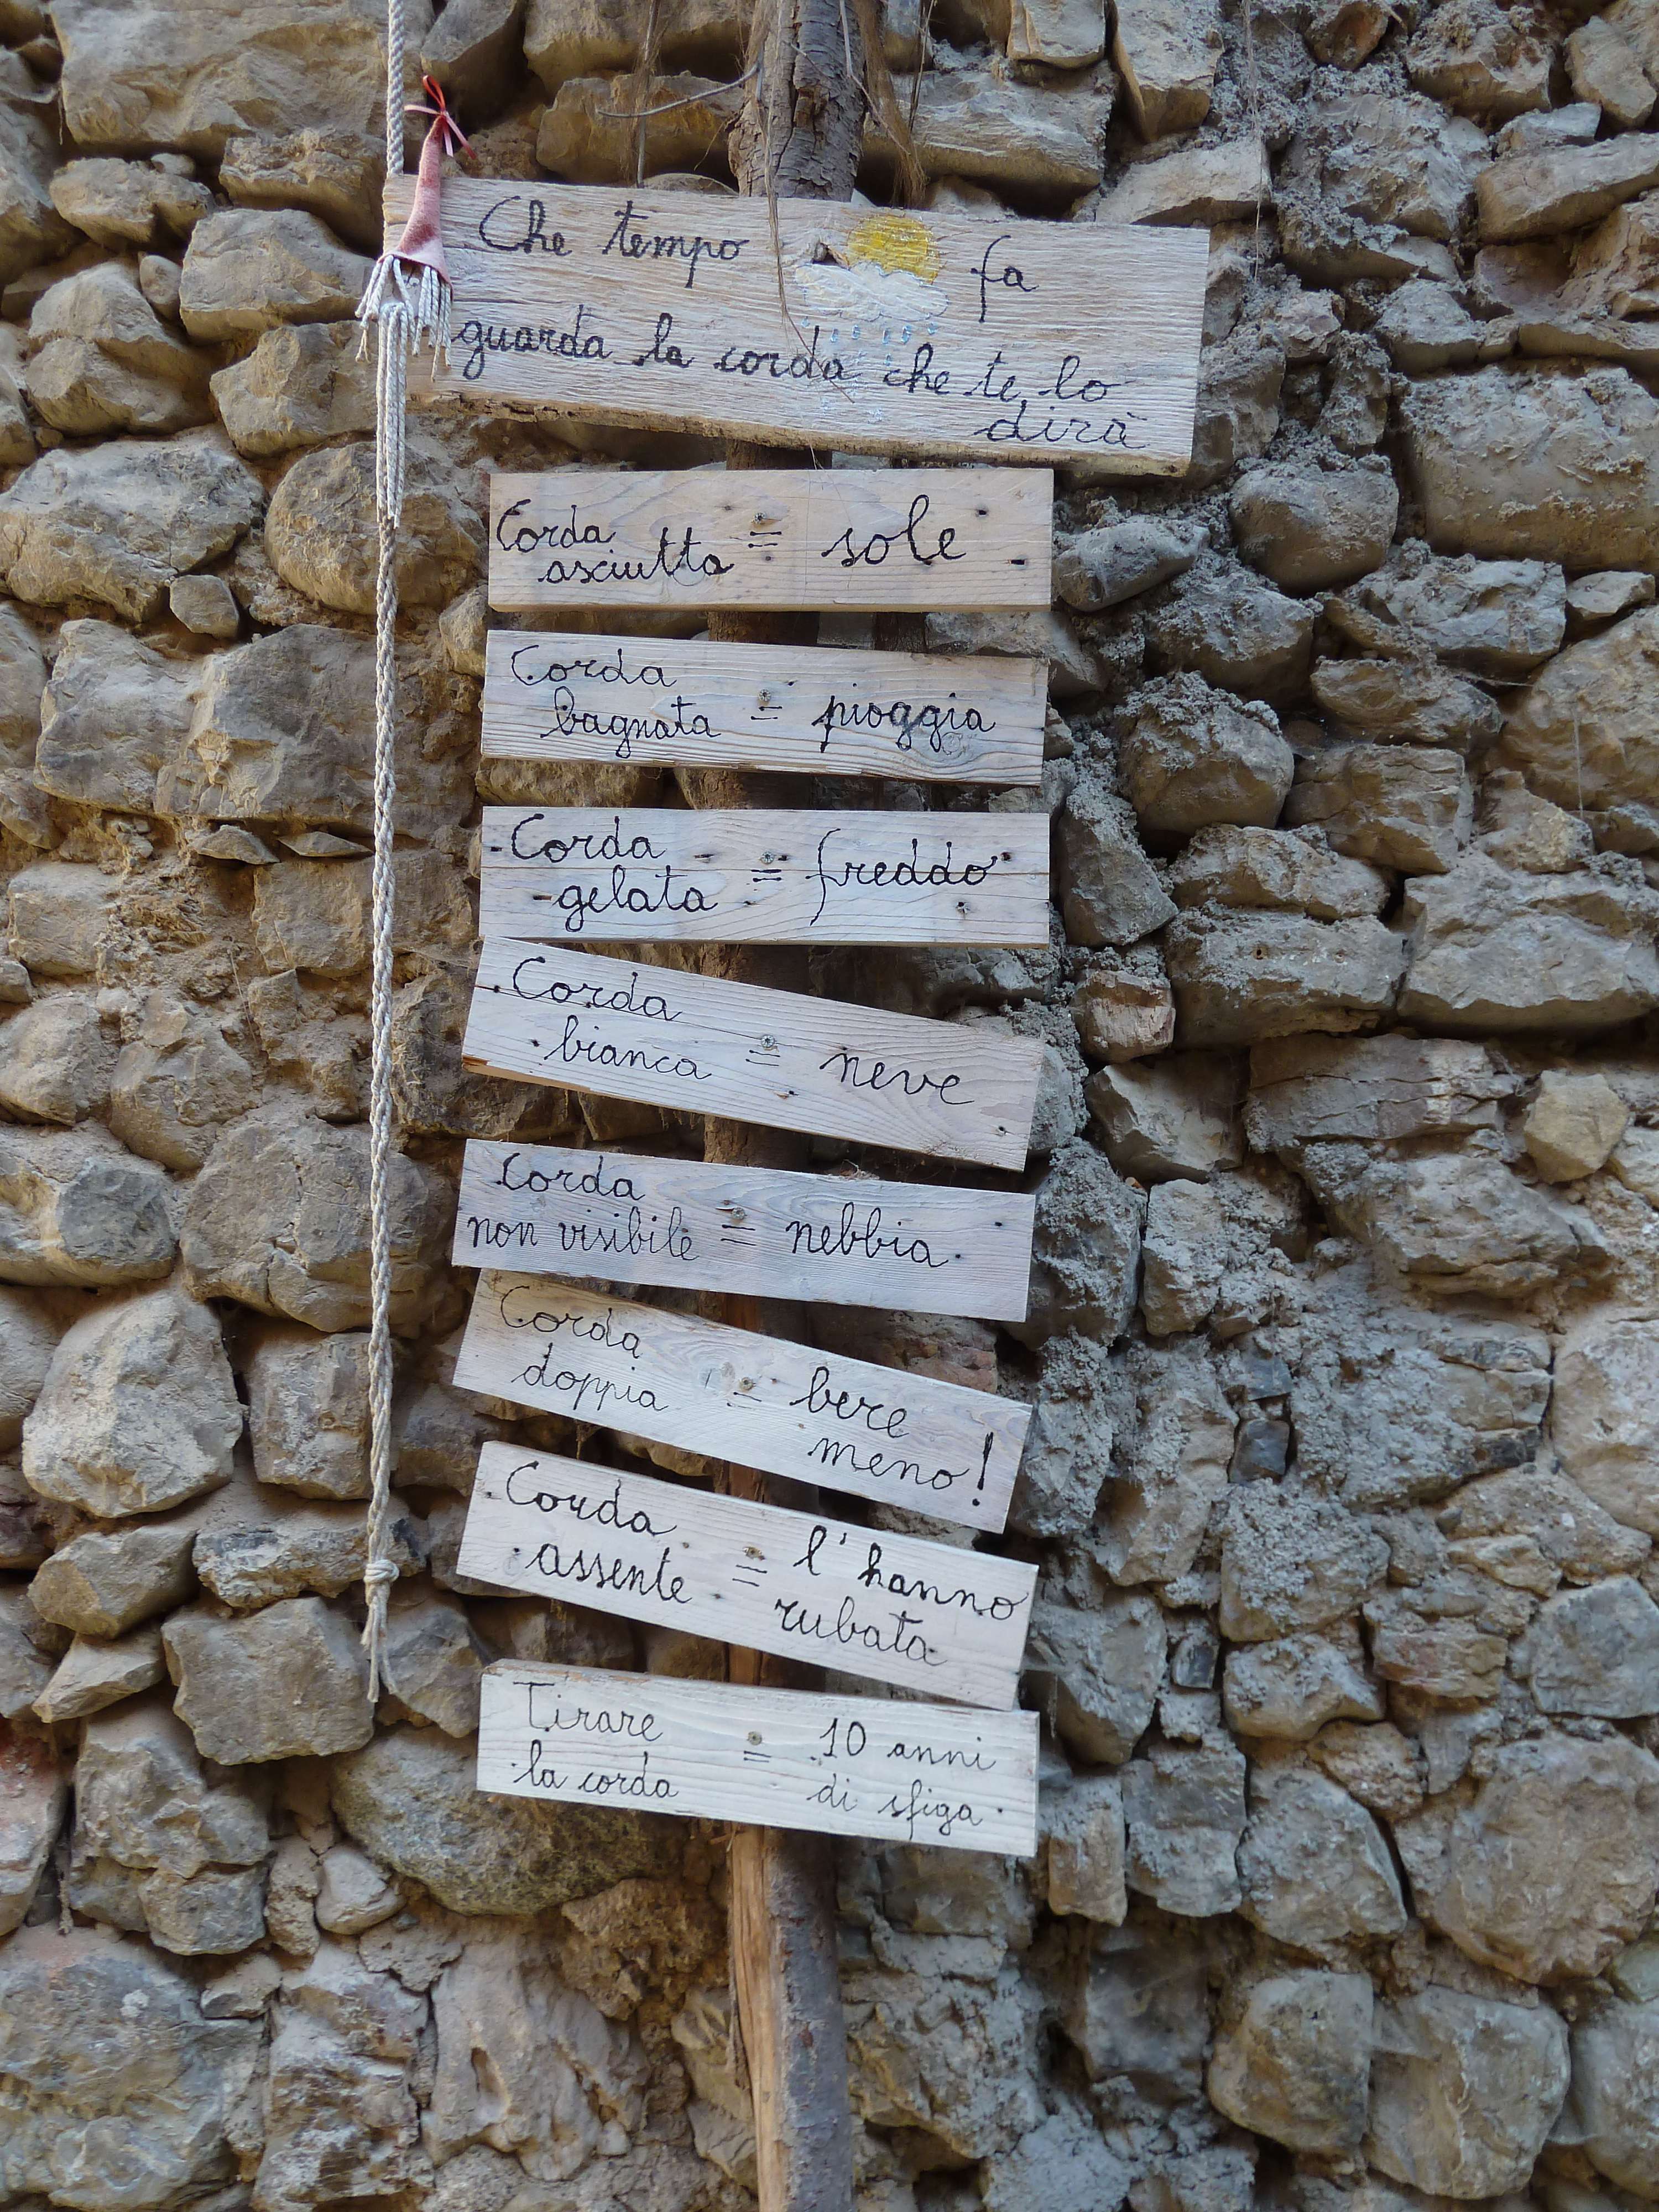 Che tempo fa
guarda la corda che te lo
dirà
Corda
asciutta = sole
Corda
bagnata = pioggia
Corda
gelata = freddo
Corda
bianca = neve
Corda
non visibile = nebbia
Corda
doppia = bere
meno!
Corda
assente = l'hanno
rubata
Tirare = 10 anni
la corda di sfiga